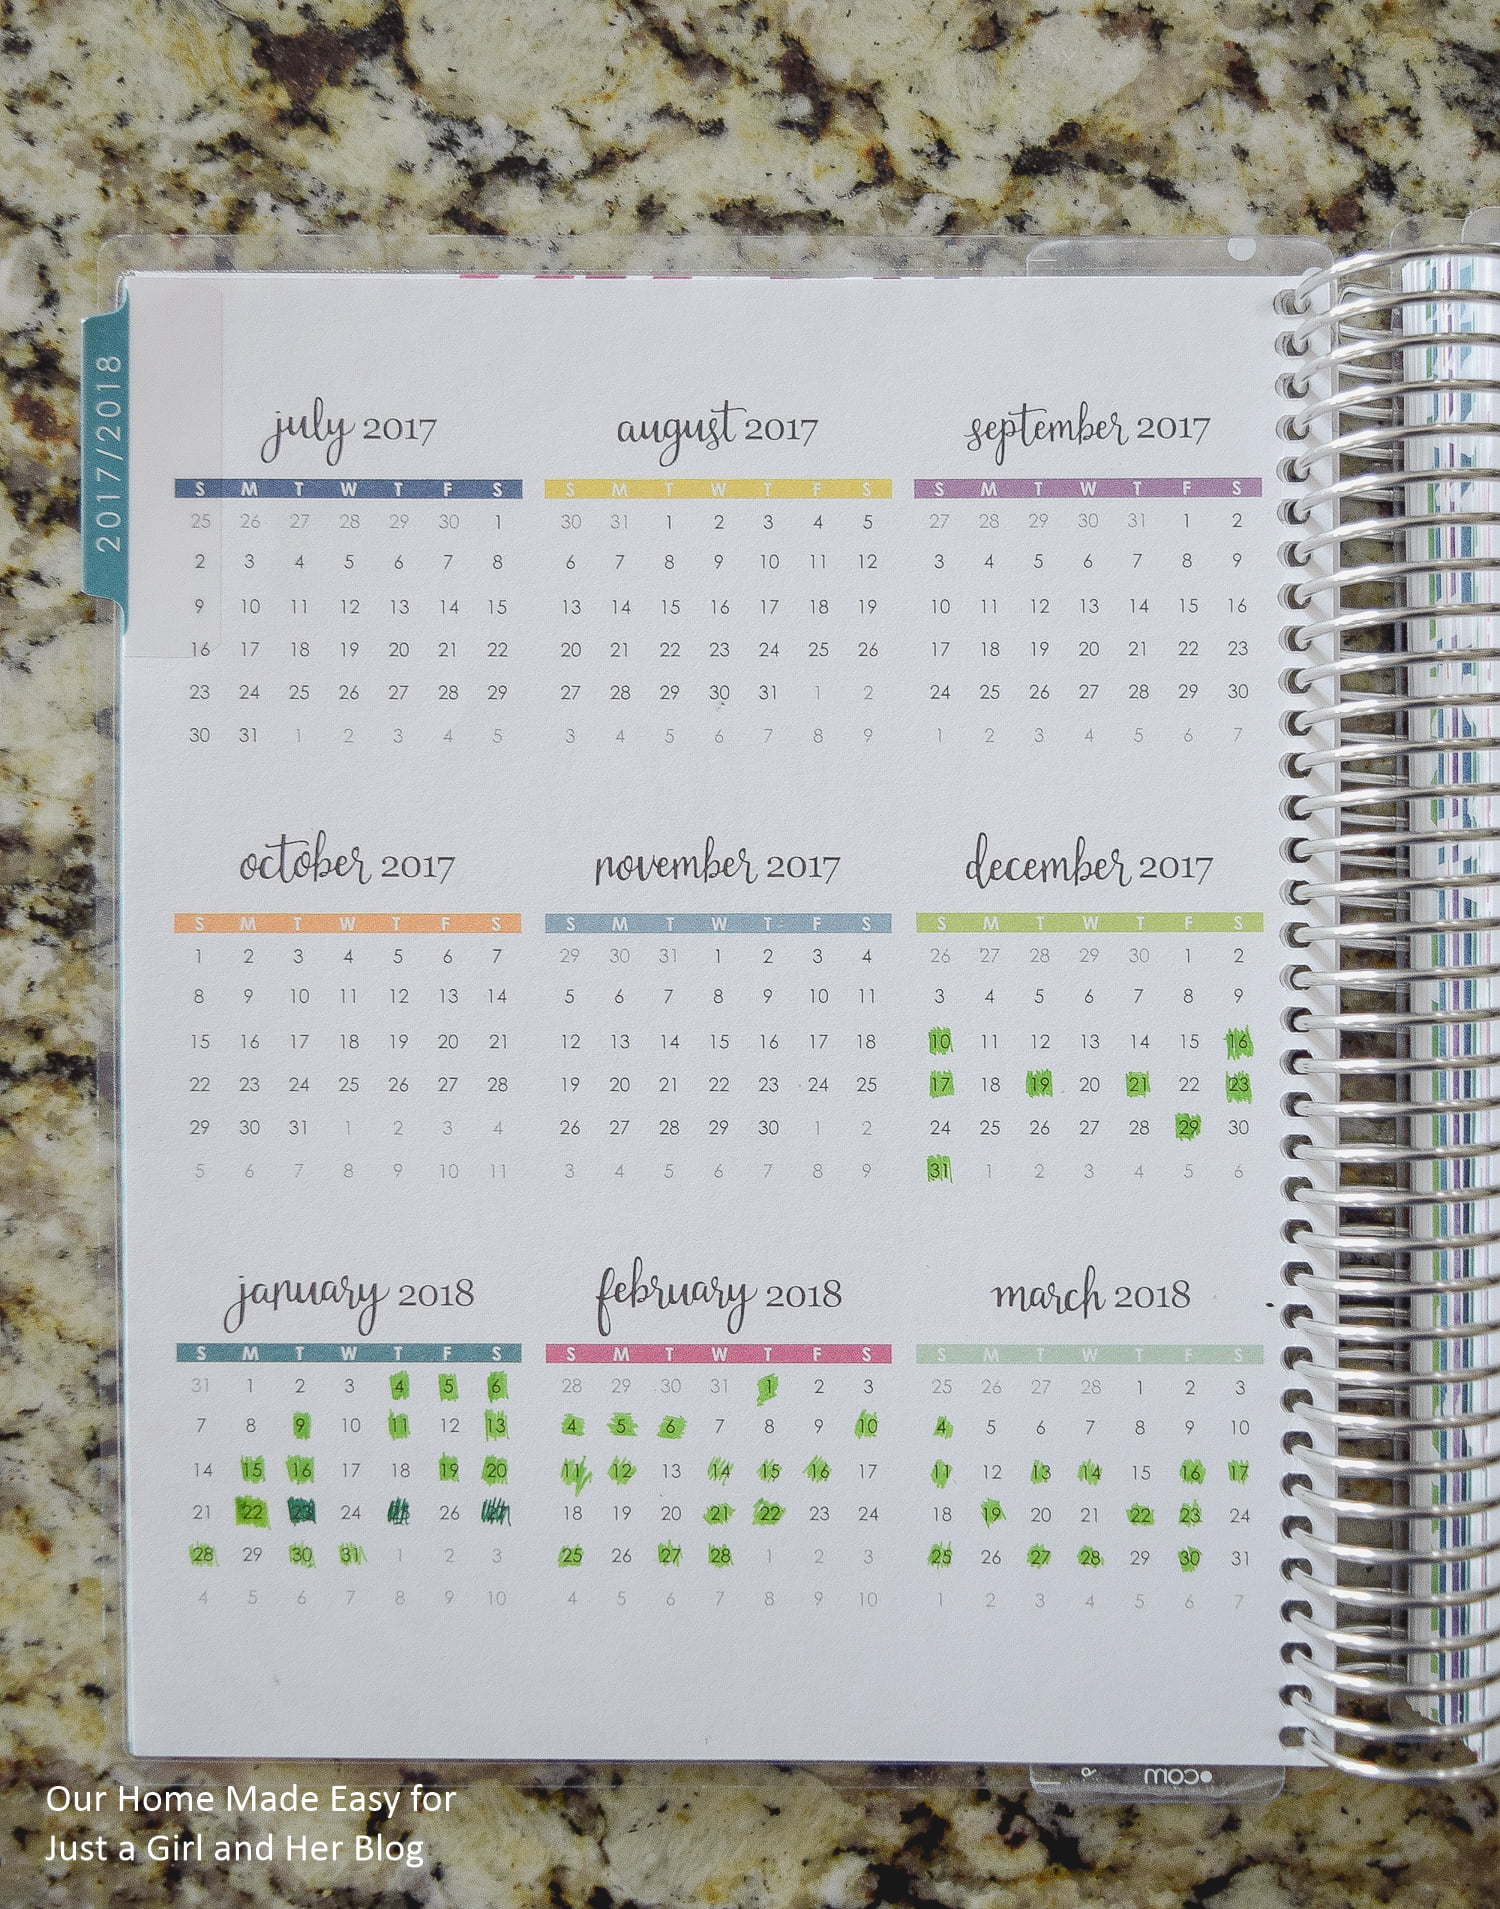 2017/2018
july 2017 august 2017 september 2017
S M T W T F S S M T W T F S S M T W T F S
25 26 27 28 29 30 1 30 31 1 2 3 4 5 27 28 29 30 31 1 2
2 3 4 5 6 7 8 6 7 8 9 10 11 12 3 4 5 6 7 8 9
9 10 11 12 13 14 15 13 14 15 16 17 18 19 10 11 12 13 14 15 16
16 17 18 19 20 21 22 20 21 22 23 24 25 26 17 18 19 20 21 22 23
23 24 25 26 27 28 29 27 28 29 30 31 1 2 24 25 26 27 28 29 30
30 31 1 2 3 4 5 3 4 5 6 7 8 9 1 2 3 4 5 6 7
october 2017 november 2017 december 2017
S M T W T F S S M T W T F S S M T W T F S
1 2 3 4 5 6 7 29 30 31 1 2 3 4 26 27 28 29 30 1 2
8 9 10 11 12 13 14 5 6 7 8 9 10 11 3 4 5 6 7 8 9
15 16 17 18 19 20 21 12 13 14 15 16 17 18 10 11 12 13 14 15 16
22 23 24 25 26 27 28 19 20 21 22 23 24 25 17 18 19 20 21 22 23
29 30 31 1 2 3 4 26 27 28 29 30 1 2 24 25 26 27 28 29 30
5 6 7 8 9 10 11 3 4 5 6 7 8 9 31 1 2 3 4 5 6
january 2018 february 2018 march 2018
S M T W T F S S M T W T F S S M T W T F S
31 1 2 3 4 5 6 28 29 30 31 1 2 3 25 26 27 28 1 2 3
7 8 9 10 11 12 13 4 5 6 7 8 9 10 4 5 6 7 8 9 10
14 15 16 17 18 19 20 11 12 13 14 15 16 17 11 12 13 14 15 16 17
21 22 23 24 25 26 27 18 19 20 21 22 23 24 18 19 20 21 22 23 24
28 29 30 31 1 2 3 25 26 27 28 1 2 3 25 26 27 28 29 30 31
4 5 6 7 8 9 10 4 5 6 7 8 9 10 1 2 3 4 5 6 7
com
Our Home Made Easy for
Just a Girl and Her Blog